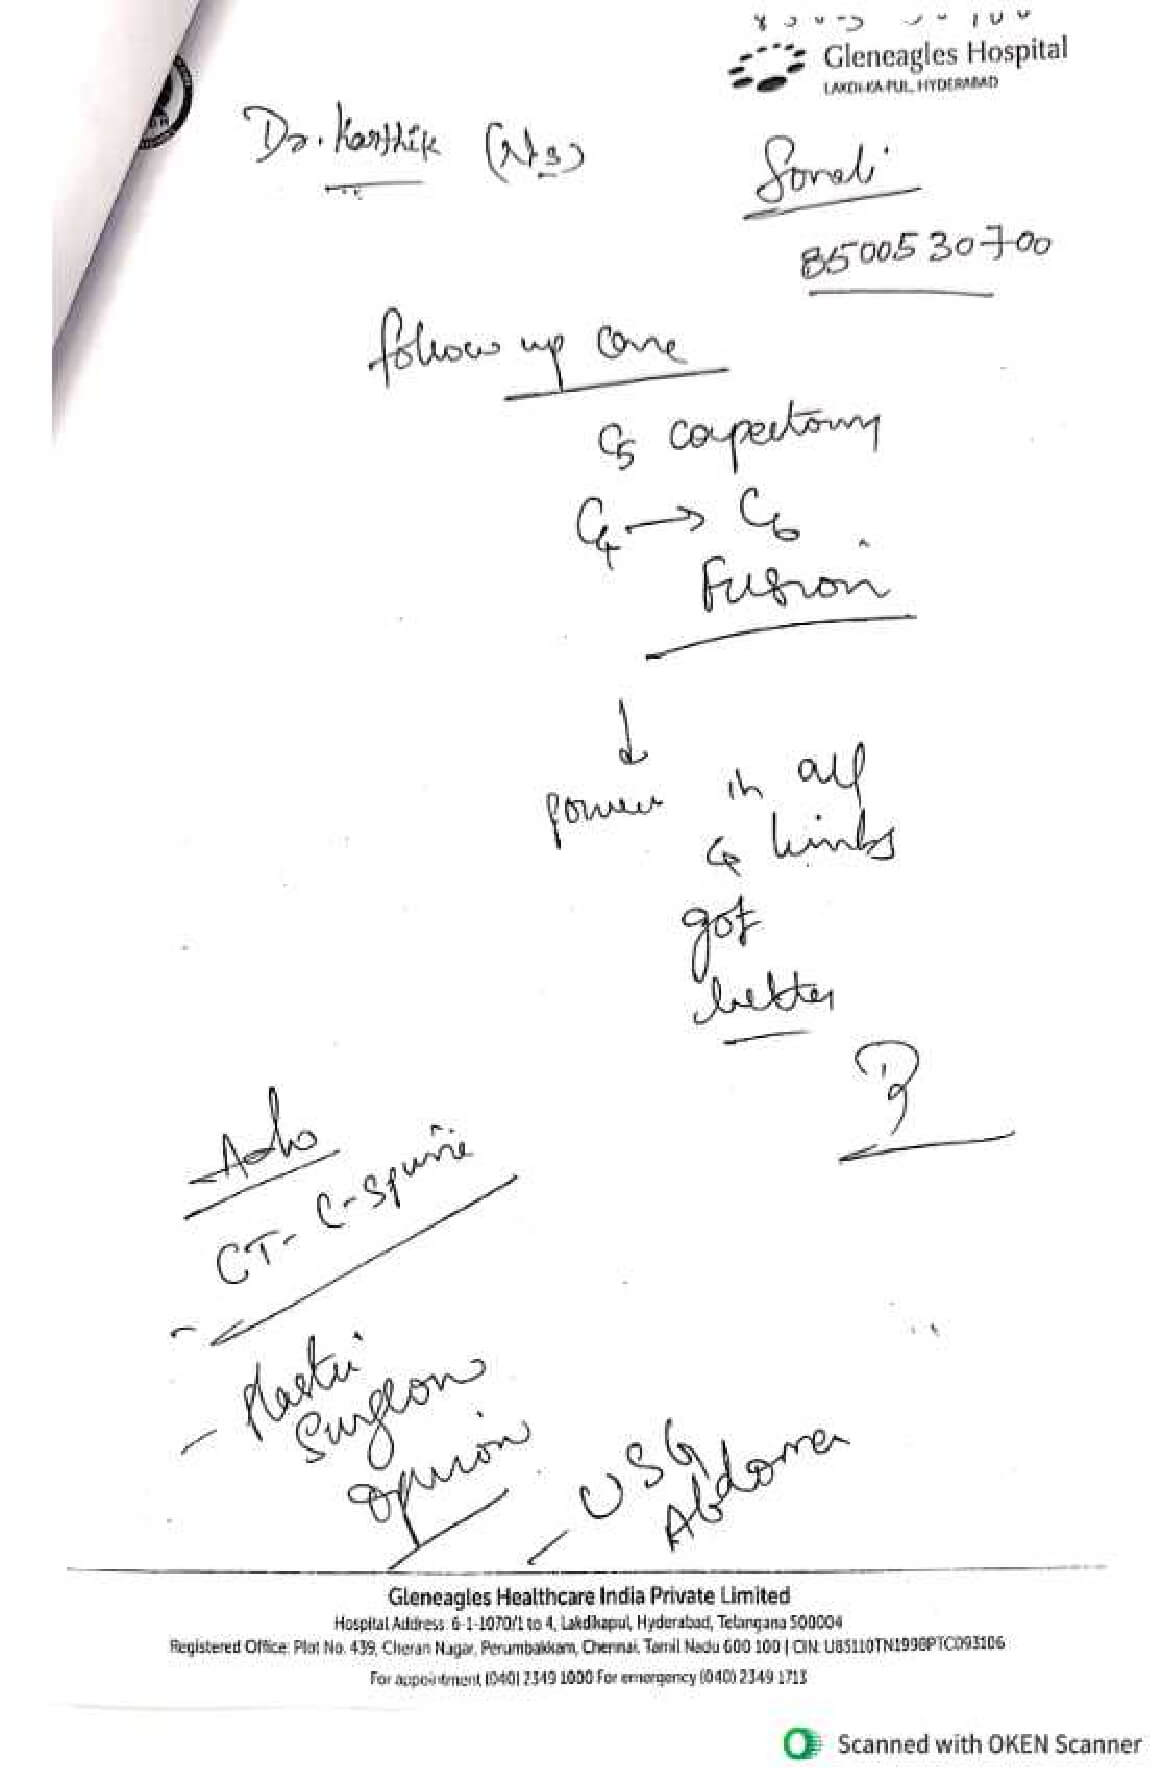 Gleneagles Hospital
LAKDI-KA-PUL, HYDERABAD
Dr. Karthik (NS)
Sonali
8500530700
follow up care
C5 corpectomy
C4 → C6
Fusion
↓
power in all
4 limbs
got
better
Adv
CT- C-Spine
- Plastic
Surgeon
opinion
- USG
Abdomen
Gleneagles Healthcare India Private Limited
Hospital Address: 6-1-1070/1 to 4, Lakdikapul, Hyderabad, Telangana 500004
Registered Office: Plot No. 439, Cheran Nagar, Perumbakkam, Chennai, Tamil Nadu 600 100 | CIN: U85110TN1998PTC093106
For appointment (040) 2349 1000 For emergency (040) 2349 1713
Scanned with OKEN Scanner